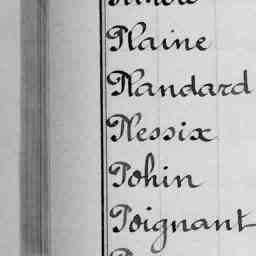 Plaine
Plandard
Plessix
Pohin
Poignant